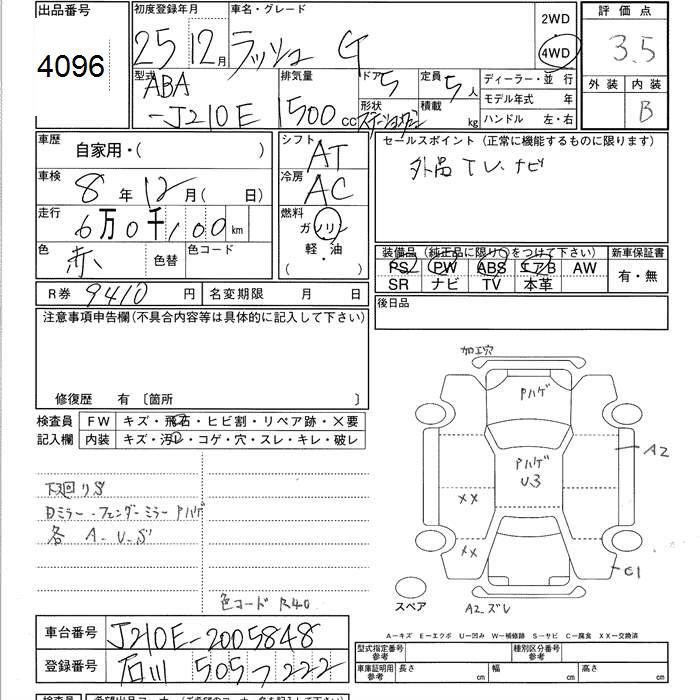 出品番号 4096
初度登録年月 25 12月
車名・グレード ラッシュ G
2WD
4WD
評価点 3.5
外装 内装 B
型式 ABA-J210E
排気量 1500cc
ドア 5
形状 ステーションワゴン
定員 5人
積載 kg
ディーラー・並 行
モデル年式 年
ハンドル 左・右
車歴 自家用・( )
車検 8年 12月( 日)
走行 6万0千100km
色 赤 色替 色コード
シフト AT
冷房 AC
燃料 ガソリン
軽・油
( )
セールスポイント (正常に機能するものに限ります)
外品 TV.ナビ
装備品 (純正品に限り○をつけて下さい) 新車保証書
PS PW ABS エアB AW 有・無
SR ナビ TV 本革
後日品
R券 9410円 名変期限 月 日
注意事項申告欄(不具合内容等は具体的に記入して下さい)
修復歴 有 〔箇所 〕
検査員 FW キズ・飛石・ヒビ割・リペア跡・×要
記入欄 内装 キズ・汚レ・コゲ・穴・スレ・キレ・破レ
下廻りS
Dミラー・フェンダーミラーPハゲ
各 A-U-S
色コード R40
加工穴
Pハゲ
Pハゲ
U3
A2
XX
XX
C1
A2-ズレ
スペア
A−キズ E−エクボ U−凹み W−補修跡 S−サビ C−腐食 XX−交換済
車台番号 J210E-2005848
登録番号 石川 505 つ 222
型式指定番号 参考 種別区分番号 参考
車庫証明用 参考 長さ cm 幅 cm 高さ cm